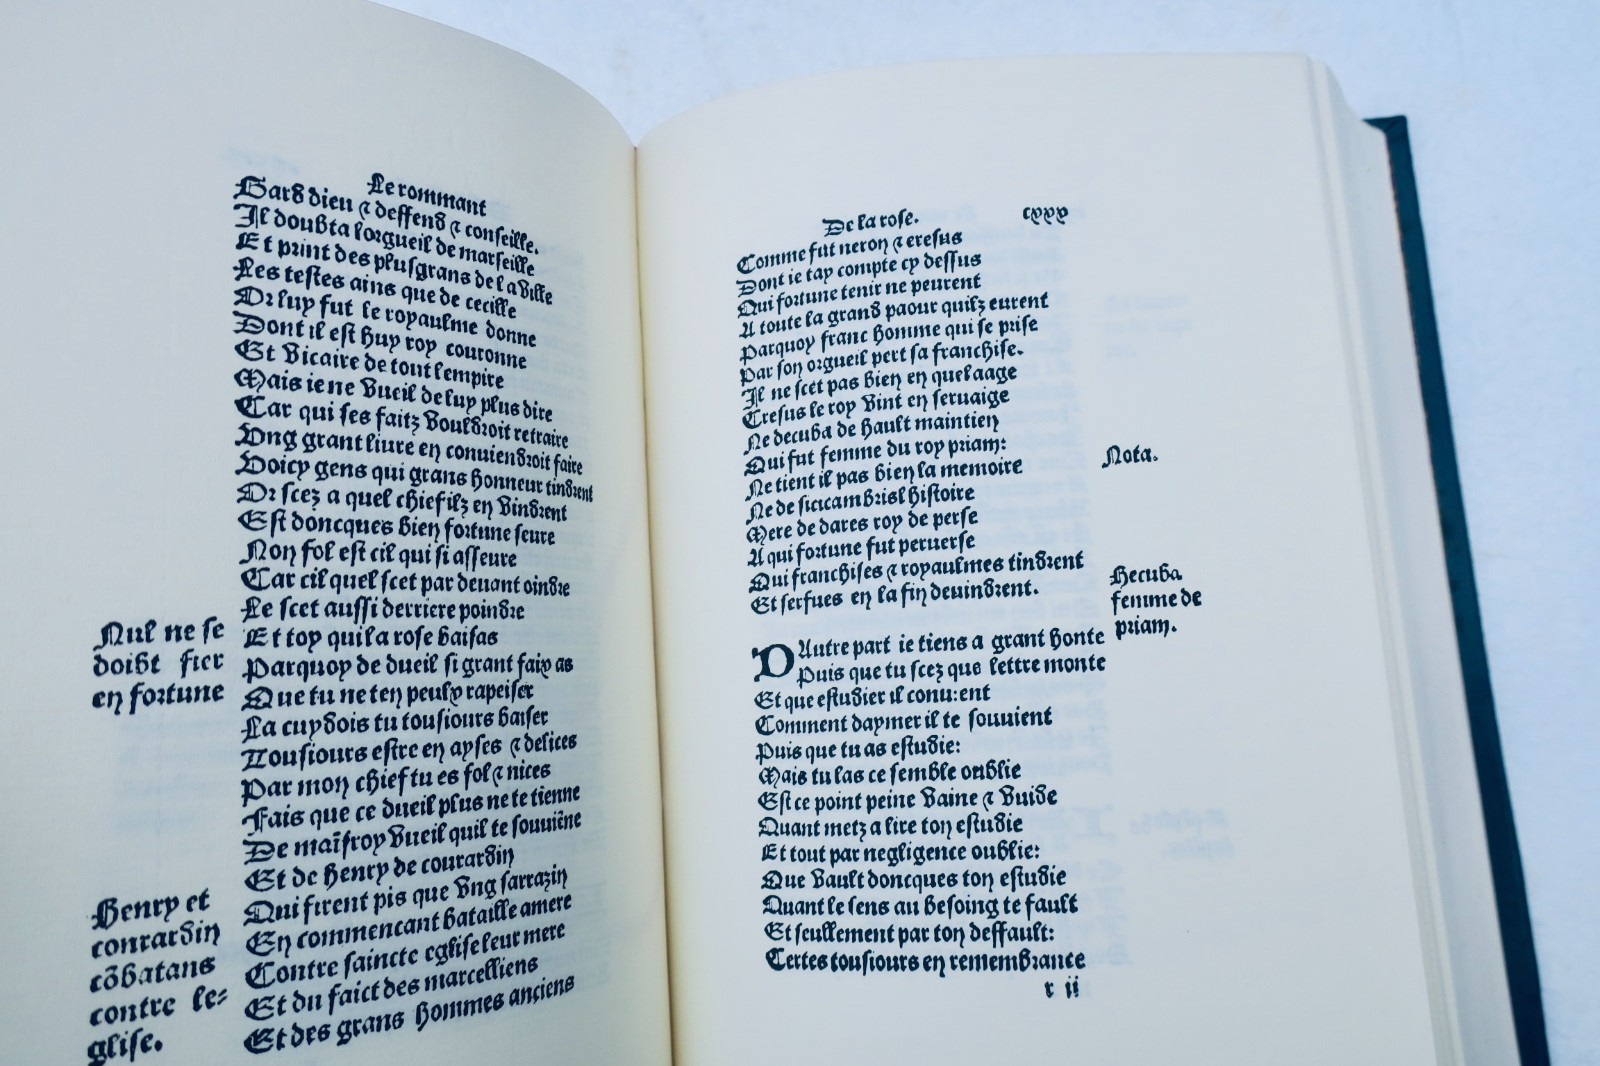 Le rommant
Gard dieu ⁊ deffend ⁊ conseille.
Il doubta lorgueil de marseille
Et print des plusgrans de la ville
Les testes ains que de cecille
Or luy fut le royaulme donne
Dont il est huy roy couronne
Et vicaire de tout lempire
Mais ie ne vueil de luy plus dire
Car qui ses faitz vouldroit retraire
Ung grant liure en conuiendroit faire
Voicy gens qui grans honneur tindrent
Or scez a quel chief ilz en vindrent
Est doncques bien fortune seure
Non fol est cil qui si asseure
Car cil quel scet par deuant oindre
Le scet aussi derriere poindre
Nul ne se
doibt fier
en fortune
Et toy qui la rose baisas
Parquoy de dueil si grant faix as
Que tu ne ten peulx rapeiser
La cuydois tu tousiours baiser
Tousiours estre en ayses ⁊ delices
Par mon chief tu es fol ⁊ nices
Fais que ce dueil plus ne te tienne
De maĩfroy vueil quil te souuiẽne
Et de henry de courardin
Qui firent pis que ung sarrazin
En commencant bataille amere
Contre saincte eglise leur mere
Et du faict des marcelliens
Et des grans hommes anciens
Henry et
conrardin
cõbatans
contre le-
glise.
De la rose. cxxx
Comme fut neron ⁊ cresus
Dont ie tay compte cy dessus
Qui fortune tenir ne peurent
A toute la grand paour quilz eurent
Parquoy franc homme qui se prise
Par son orgueil pert sa franchise.
Il ne scet pas bien en quel aage
Cresus le roy vint en seruaige
Ne decuba de hault maintien
Qui fut femme du roy priam:
Ne tient il pas bien la memoire
Ne de sicicambrisl histoire
Mere de dares roy de perse
A qui fortune fut peruerse
Qui franchises ⁊ royaulmes tindrent
Et serfues en la fin deuindrent.
Nota.
Hecuba
femme de
priam.
DAutre part ie tiens a grant honte
Puis que tu scez que lettre monte
Et que estudier il conuient
Comment daymer il te souuient
Puis que tu as estudie:
Mais tu las ce semble oublie
Est ce point peine vaine ⁊ vuide
Quant metz a lire ton estudie
Et tout par negligence oublie:
Que vault doncques ton estudie
Quant le sens au besoing te fault
Et seullement par ton deffault:
Certes tousiours en remembrance
r ii